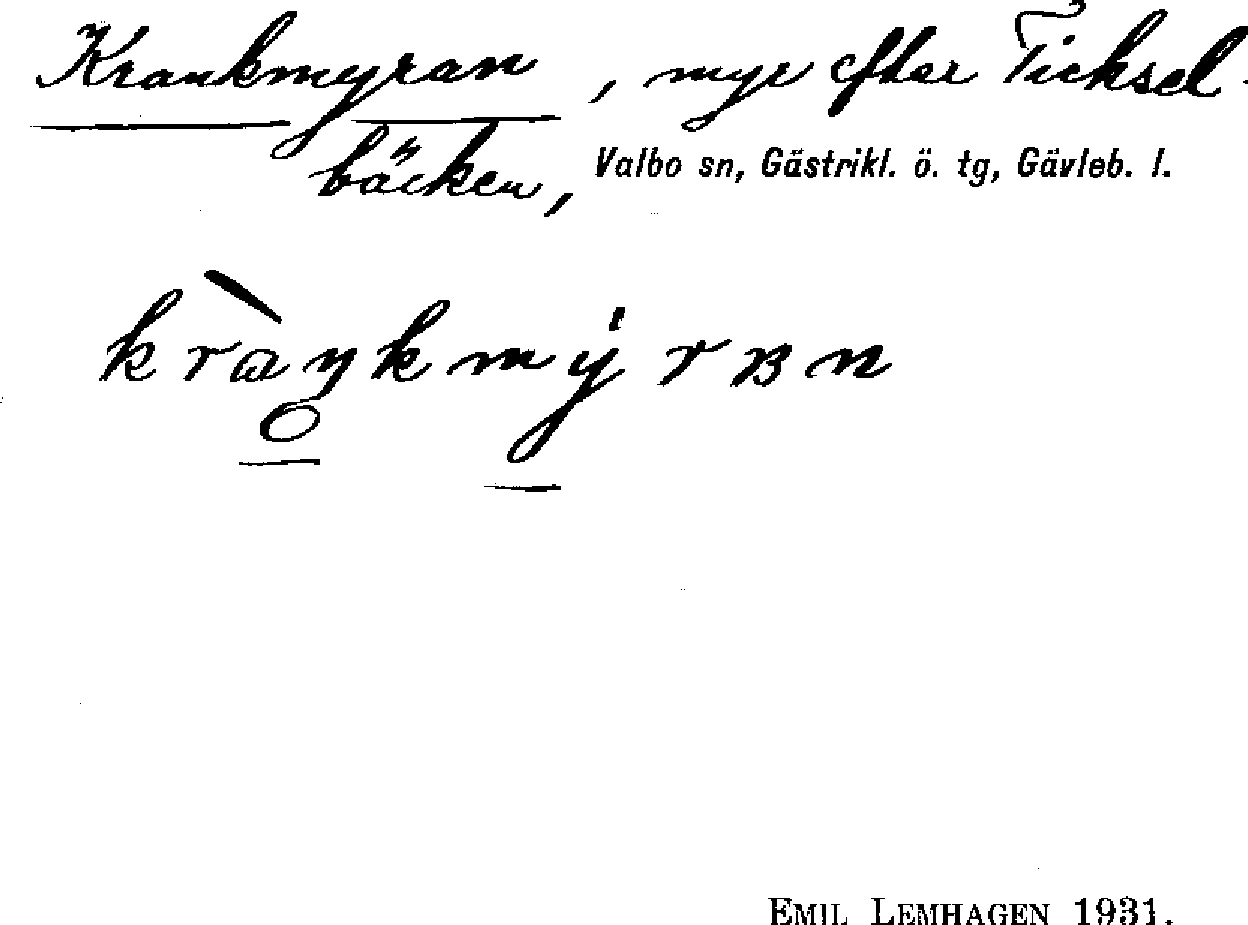 Krankmyran, myr efter Ticksel-
bäcken, Valbo sn, Gästrikl. ö. tg, Gävleb. l.
kràŋkmýrʙn
EMIL LEMHAGEN 1931.